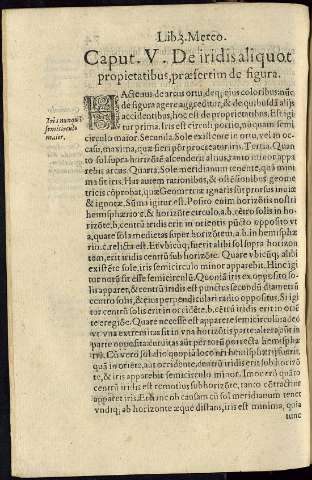 Lib.3. Meteo.
Caput. V. De iridis aliquot
propietatibus, præsertim de figura.
HActenus de arcus ortu, deq́; eius coloribus: nūc
de figura agere aggreditur, & de quibusdā alijs
accidentibus, hoc est de proprietatibus. Est igi
tur prima. Iris est circuli portio, nūquam semi
circulo maior. Secunda. Sole existente in ortu, vel in oc-
casu, maxima, quæ fieri possit procreatur iris. Tertia. Quan
to sol supra horizōtē ascenderit altius, tanto minor appa
rebit arcus. Quarta. Sole meridianum tenente, quā mini
ma sit iris. Has autem rationibus, & ostēsionibus geome
tricis cōprobat, quæ Geometriæ ignaris sūt prorsus inuiæ
& ignotæ. Summa igitur est. Posito enim horizōtis nostri
hemisphærio & horizōte circulo, a. b. cētro solis in ho-
rizōte, b. centrū iridis erit in orientis pūcto opposito vt
a, quare sola medietas super horizōtem, a. b. in hemisphæ
rio, c. relicta est. Et vbicūq; fuerit altihi sol supra horizon
tem, erit iridis centrū sub horizōte. Quare vbicūq; alibi
existēte sole, iris semicirculo minor apparebit. Hinc igi
tor nō sit esse semicirculū. Quoniā iris ex opposito so-
lis apparet, & centrū iridis est punctus secundū diametrū
centro solis, & eius perpendiculari radio oppositus. Si igi
tor centrū solis erit in occidēte. b. cētrū iridis erit in oriē
te è regiōe. Quare necesse est apparere semicirculū adeo
vt vna extremitas sit in vna horizōtis parte altera autē in
parte opposita
Cū vero sol
quā in oriēte, aut occidente, centrū iridis erit sub horizō
te, & iris apparebit semicirculo minor. Imo cum quāto
centrū iridis est remotius sub horizōte, tanto cōtractior
apparet iris. Et hanc ob causam cū sol meridianum tenet
vndiq; ab horizonte æque distans, iris est minima, quia
tunc
Iris nunquā
semicirculo
maior.